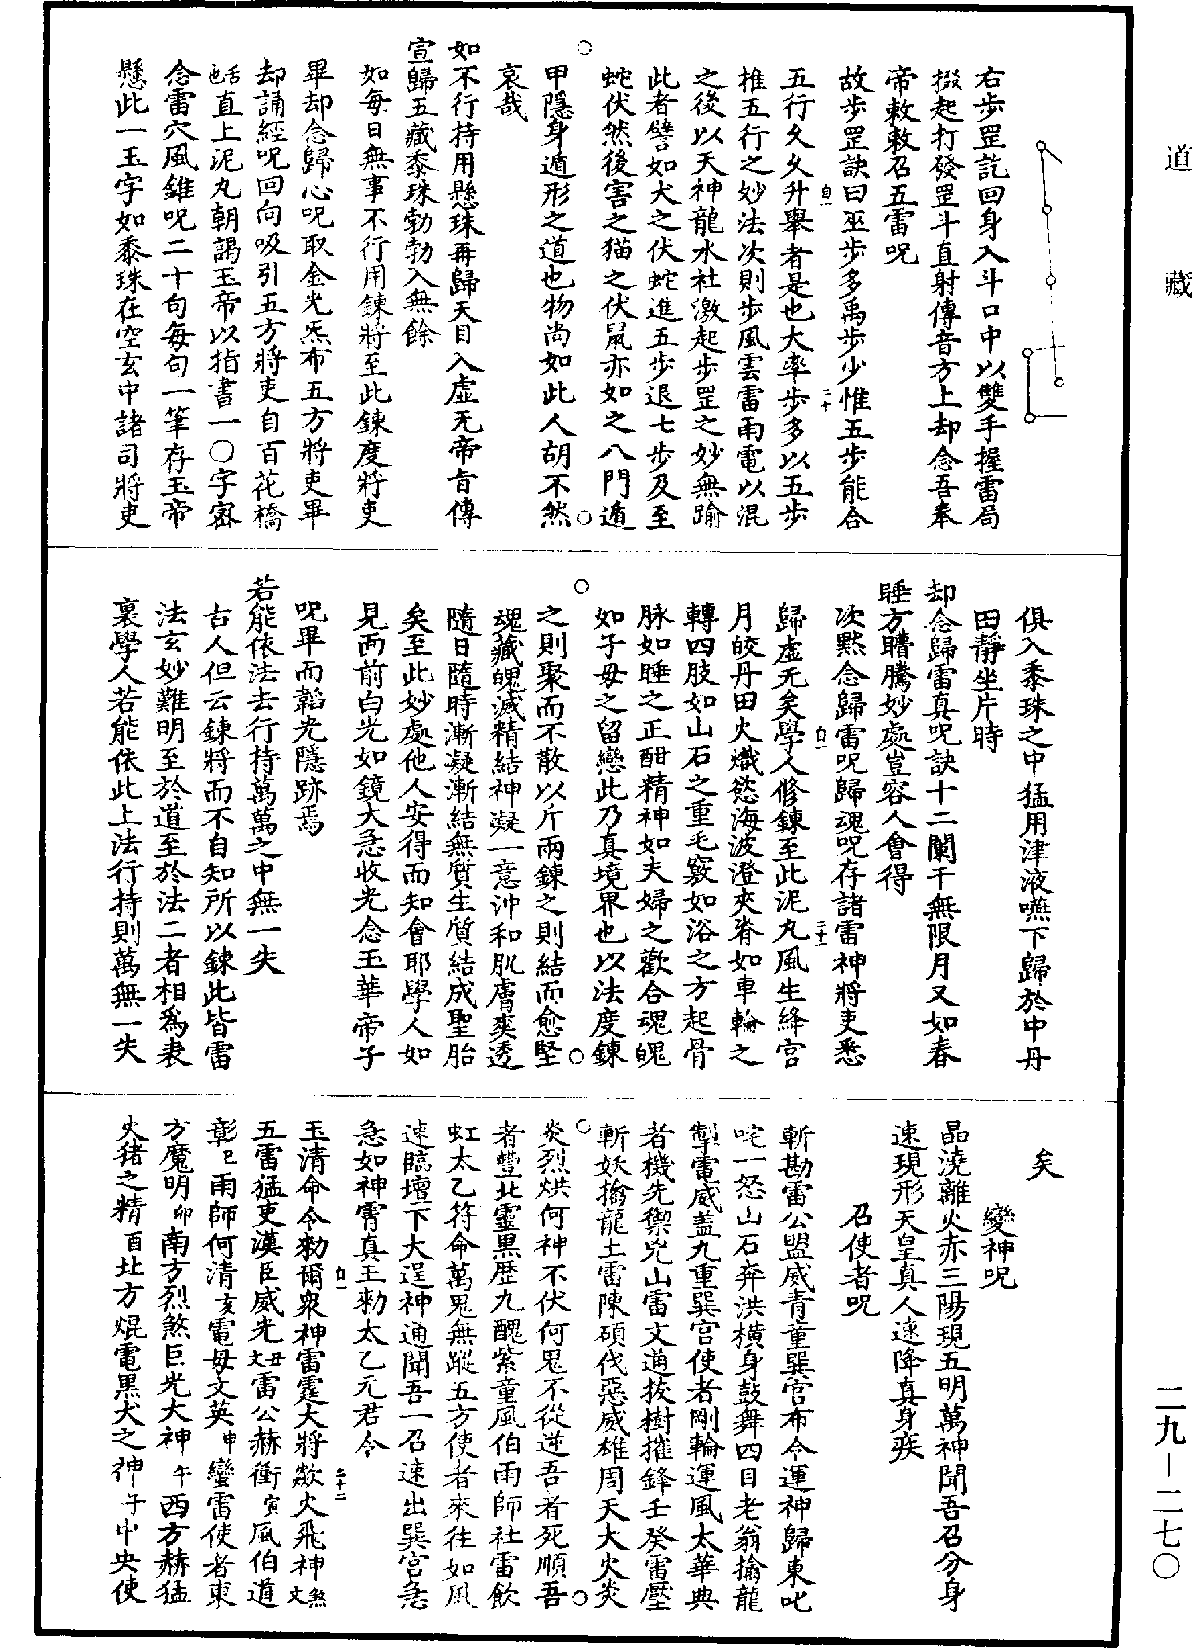 道藏
右步罡訖回身入斗口中以雙手握雷局
掇起打發罡斗直射傳音方上却念吾奉
帝敕敕召五雷呪
故步罡訣曰巫步多禹步少惟五步能合
五行久久升舉者是也大率步多以五步
推五行之妙法次則步風雲雷雨電以混
之後以天神龍水社激起步罡之妙無踰
此者譬如犬之伏蛇進五步退七步及至
蛇伏然後害之猫之伏鼠亦如之八門遁
甲隱身遁形之道也物尚如此人胡不然
哀哉
如不行持用懸珠再歸天目入虛无帝音傳
宣歸五藏黍珠勃勃入無餘
如每日無事不行用鍊將至此鍊度將吏
畢却念歸心呪取金光炁布五方將吏畢
却誦經呪回向吸引五方將吏自百花橋
舌直上泥丸朝謁玉帝以指書一〇字密
念雷穴風錐呪二十句每句一筆存玉帝
懸此一玉字如黍珠在空玄中諸司將吏
俱入黍珠之中猛用津液嚥下歸於中丹
田靜坐片時
却念歸雷真呪訣十二闌干無限月又如春
睡方矒騰妙處豈容人會得
次默念歸雷呪歸魂呪存諸雷神將吏悉
歸虛无矣學人修鍊至此泥丸風生絳宮
月皎丹田火熾慾海波澄夾脊如車輪之
轉四肢如山石之重毛竅如浴之方起骨
脉如睡之正酣精神如夫婦之歡合魂魄
如子母之留戀此乃真境界也以法度鍊
之則聚而不散以斤兩鍊之則結而愈堅
魂藏魄滅精結神凝一意沖和肌膚爽透
隨日隨時漸凝漸結無質生質結成聖胎
矣至此妙處他人安得而知會耶學人如
見兩前白光如鏡大急收光念玉華帝子
呪畢而韜光隱跡焉
若能依法去行持萬萬之中無一失
古人但云鍊將而不自知所以鍊此皆雷
法玄妙難明至於道至於法二者相爲表
裏學人若能依此上法行持則萬無一失
矣
變神呪
晶澆離火赤三陽現五明萬神聞吾召分身
速現形天皇真人速降真身疾
召使者呪
斬勘雷公盟威青童巽宮布令運神歸東叱
咤一怒山石奔洪橫身鼓舞四目老翁擒龍
掣雷威蓋九重巽宮使者剛輪運風太華典
者機先禦兇山雷文遁拔樹摧鋒壬癸雷壓
斬妖擒龍土雷陳碩伐惡威雄周天大火炎
炎烈烘何神不伏何鬼不從逆吾者死順吾
者豐北靈黑歷九醜紫童風伯雨師社雷飲
虹太乙符命萬鬼無蹤五方使者來往如風
速臨壇下大逞神通聞吾一召速出巽宮急
急如神霄真王勑太乙元君令
玉清命令勑爾衆神雷霆大將歘火飛神煞文
五雷猛吏漢臣威光丑文雷公赫衝寅風伯道
彰巳雨師何清亥電母文英申蠻雷使者東
方魔明卯南方烈煞巨光大神午西方赫猛
火猪之精酉北方焜電黑犬之神子中央使
二九—二七〇